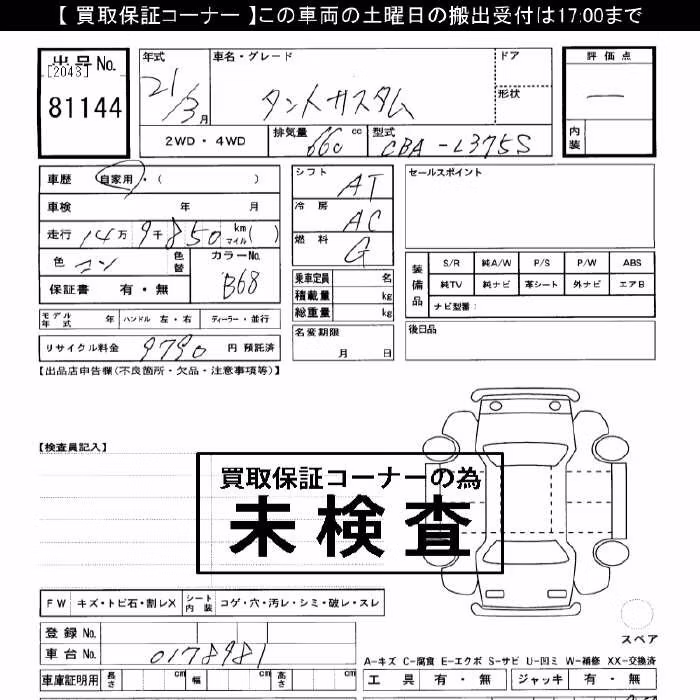 【 買取保証コーナー 】この車両の土曜日の搬出受付は17:00まで
出品 No.
[2043]
81144
年式 車名・グレード ドア 評価点
21/3月 タントカスタム 形状 —
2WD・4WD 排気量 660 cc 型式 CBA-L375S 内装
車歴 自家用・( )
車検 年 月
走行 14万9千850 km マイル( )
色 コン 色替 カラーNo. B68
保証書 有・無
モデル年式 年 ハンドル 左・右 ディーラー・並行
リサイクル料金 9790 円 預託済
シフト AT
冷房 AC
燃料 G
乗車定員 名
積載量 kg
総重量 kg
名変期限 月 日
セールスポイント
装備品 S/R 純A/W P/S P/W ABS
純TV 純ナビ 革シート 外ナビ エアB
ナビ型番:
後日品
【出品店申告欄(不良箇所・欠品・注意事項等)】
【検査員記入】
買取保証コーナーの為
未検査
FW キズ・トビ石・割レX シート内装 コゲ・穴・汚レ・シミ・破レ・スレ
登録 No.
車台 No. 0178981
車庫証明用 長さ cm 幅 cm 高さ cm
スペア
A-キズ C-腐食 E-エクボ S-サビ U-凹ミ W-補修 XX-交換済
工具 有・無 ジャッキ 有・無